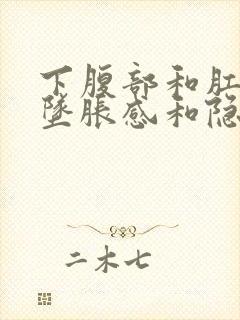 下腹部和肛
坠胀感和隐
二木七